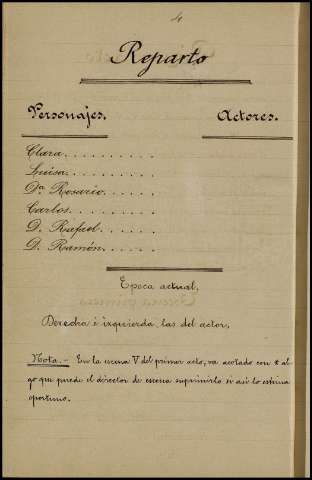 4
Reparto
Personajes. Actores.
Clara . . . . . . . . . .
Luisa . . . . . . . . . .
Dª Rosario . . . . . .
Carlos . . . . . . . . .
D. Rafael . . . . . .
D. Ramón . . . . . .
Epoca actual,
Derecha é izquierda, las del actor,
Nota. - En la escena V del primer acto, va acotado con * al-
go que puede el director de escena suprimirlo si así lo estima
oportuno.